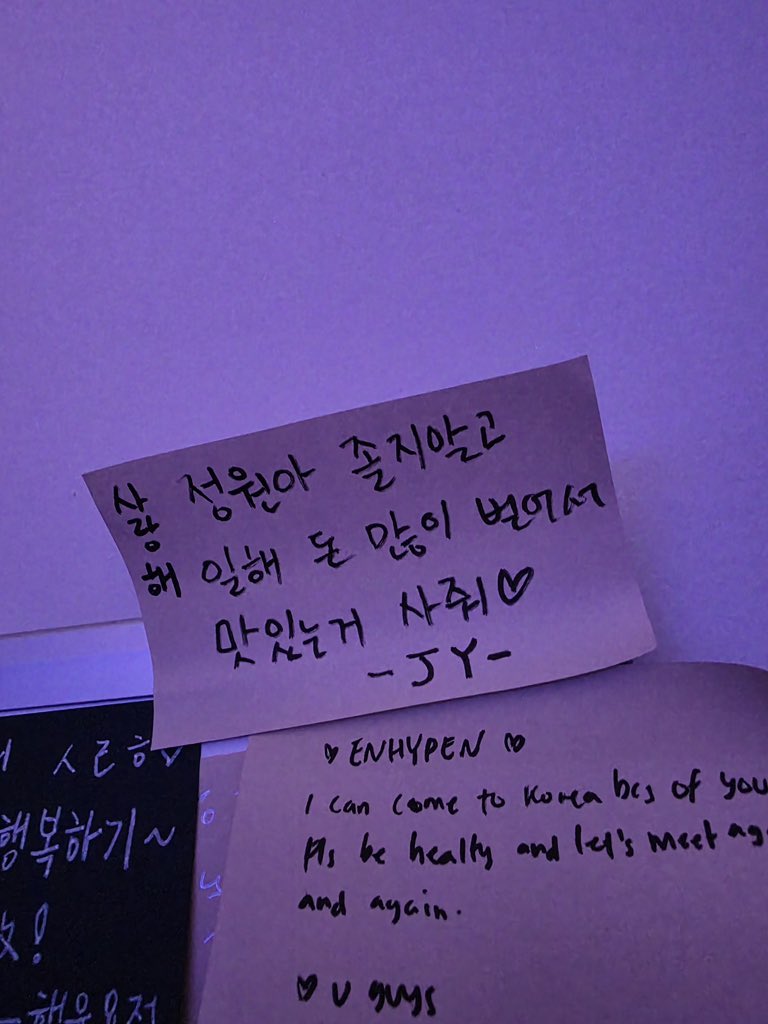 사랑해
정원아 졸지말고
일해 돈 많이 벌어서
맛있는거 사줘♡
-JY-
♡ ENHYPEN ♡
I can come to Korea bcs of you
Pls be healty and let's meet
and again.
♡ U guys
행복하기~